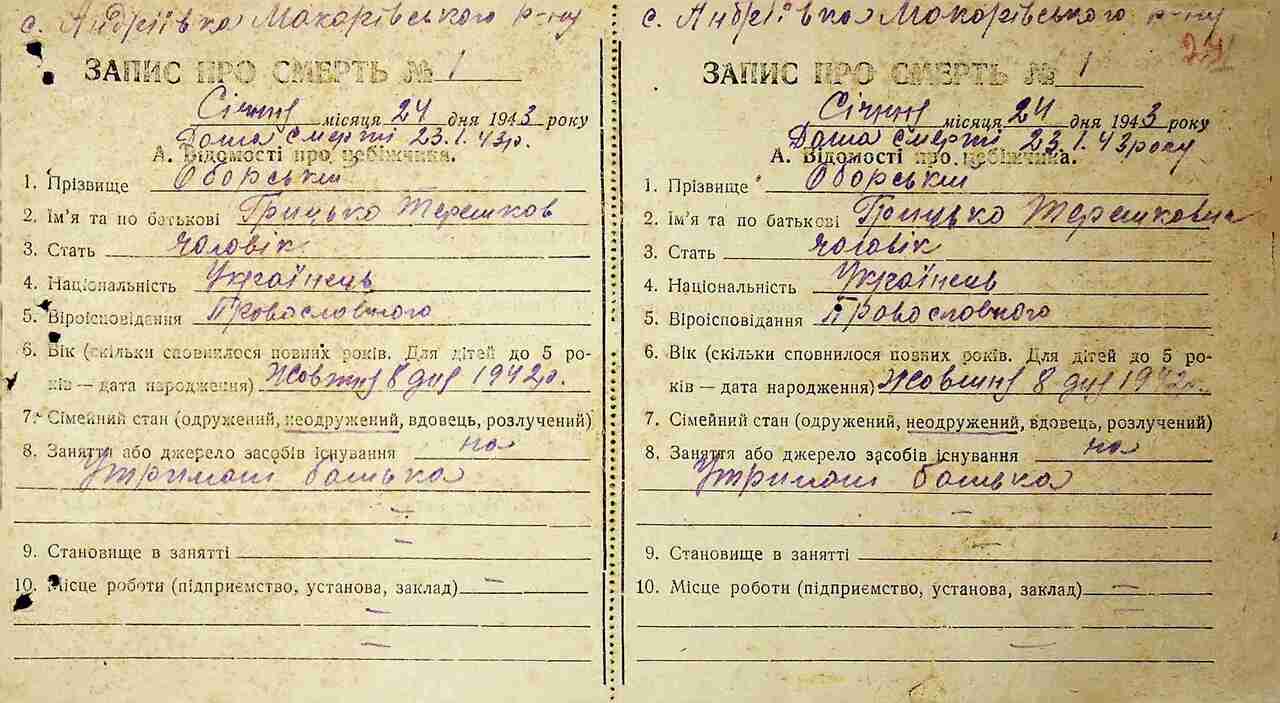 с. Андріївка Макарівського р-ну
ЗАПИС ПРО СМЕРТЬ № 1
Січня місяця 24 дня 1943 року
Дата смерті 23.1.43р.
А. Відомості про небіжчика.
1. Прізвище Оборський
2. Ім'я та по батькові Грицько Терешков
3. Стать чоловік
4. Національність Українець
5. Віроісповідання Православного
6. Вік (скільки сповнилося повних років. Для дітей до 5 ро-
ків — дата народження) Жовтня 8 дня 1942р.
7. Сімейний стан (одружений, неодружений, вдовець, розлучений)
8. Заняття або джерело засобів існування на
Утримані батька
9. Становище в занятті —
10. Місце роботи (підприємство, установа, заклад) —
с. Андріївка Макарівського р-ну
24
ЗАПИС ПРО СМЕРТЬ № 1
Січня місяця 24 дня 1943 року
Дата смерті 23.1.43 року
А. Відомості про небіжчика.
1. Прізвище Оборський
2. Ім'я та по батькові Грицько Терешкович
3. Стать чоловік
4. Національність Українець
5. Віроісповідання Православного
6. Вік (скільки сповнилося повних років. Для дітей до 5 ро-
ків — дата народження) Жовтня 8 дня 1942р.
7. Сімейний стан (одружений, неодружений, вдовець, розлучений)
8. Заняття або джерело засобів існування на
Утримані батька
9. Становище в занятті —
10. Місце роботи (підприємство, установа, заклад) —